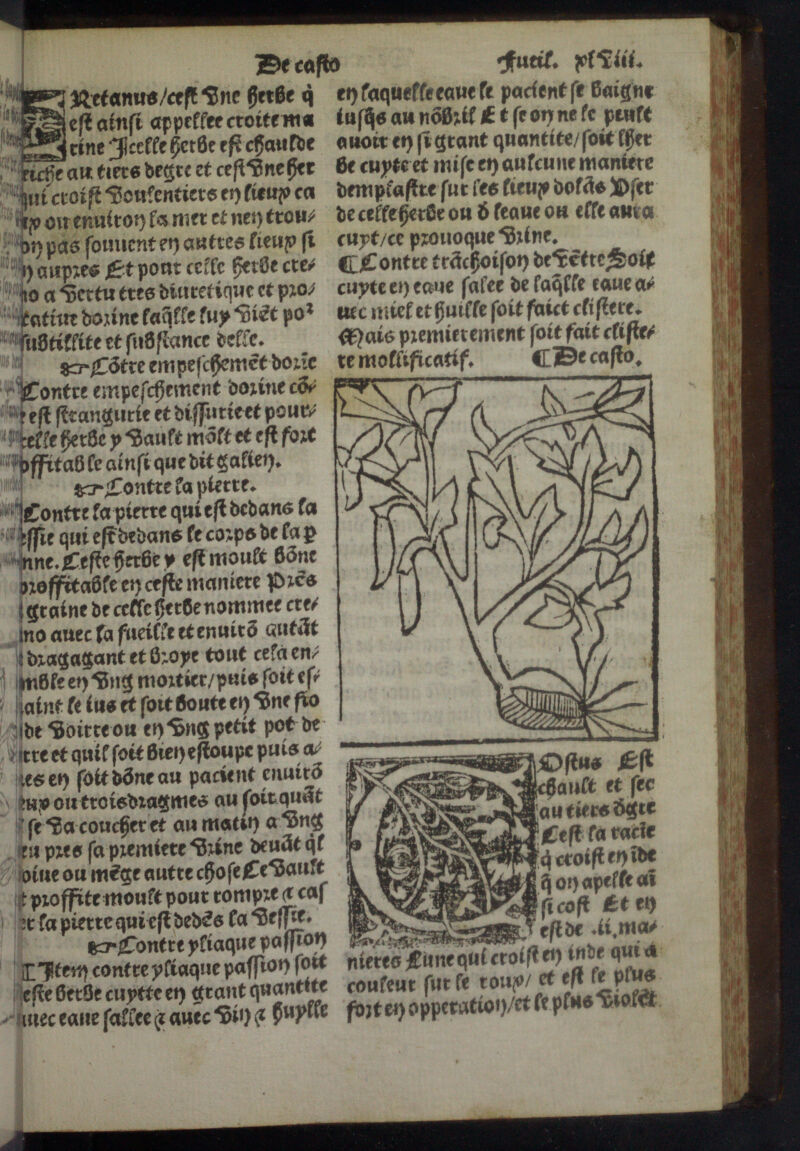 De casto
fueil. xlviii.
Retanus/cest vne herbe q̄
est ainsi appellee croitte ma
rine Icelle herbe est chaulde
seiche au tiers degre et cest vne her
qui croist voulentiers en lieux ca
ux ou enuiron la mer et nen trou⸗
on pas souuent en autres lieux si
n aupres Et pour celle herbe cre⸗
no a vertu tres diuretique et pro⸗
uocatiue dorine laq̄lle luy viēt por
subtillite et substance delle.
☞Cōtre empeschemēt dorīe
Contre empeschement dorine cō⸗
e est strangurie et dissurie et pour⸗
telle herbe y vault mōlt et est fort
offitable ainsi que dit galien.
☞Contre la pierre.
Contre la pierre qui est dedans la
essie qui est dedans le corps de la p
nne. Ceste herbe y est moult bōne
proffitable en ceste maniere Prēs
graine de celle herbe nommee cre⸗
no auec la fueille et enuirō autāt
dragagant et broye tout cela en⸗
mble en vng mortier/puis soit es⸗
aint le ius et soit boute en vne fio
de voirre ou en vng petit pot de
rre et quil soit bien estoupe puis a⸗
es en soit dōne au pacient enuirō
eux ou trois dragmes au soir quāt
se va coucher et au matin a vng
eu pres sa premiere vrine deuāt ql
oiue ou mēge autre chose Ce vault
t proffite moult pour rompre ⁊ cas
er la pierre qui est dedēs la vessie.
☞Contre yliaque passion
Item contre yliaque passion soit
este herbe cuytte en grant quantite
auec eaue sallee ⁊ auec vin ⁊ huylle
en laquelle eaue le pacient se baigne
iusq̄s au nōbril Et se on ne le peult
auoir en si grant quantite/soit lher
be cuyte et mise en aulcune maniere
demplastre sur les lieux dolās Vser
de celle herbe ou d̄ leaue ou elle aura
cuyt/ce prouoque vrine.
¶Contre trāchoison de vētre Soit
cuyte en eaue salee de laq̄lle eaue a⸗
uec miel et huille soit faict clistere.
Mais premierement soit fait cliste⸗
re mollificatif. ¶De casto.
Ostus Est
chault et sec
au tiers dgre
Cest la racie
q̄ croist en ide
q̄ on apelle aī
si cost Et en
est de .ii. ma⸗
nieres Lune qui croist en inde qui a
couleur sur le roux/ et est le plus
fort en opperation/et le plus violēt